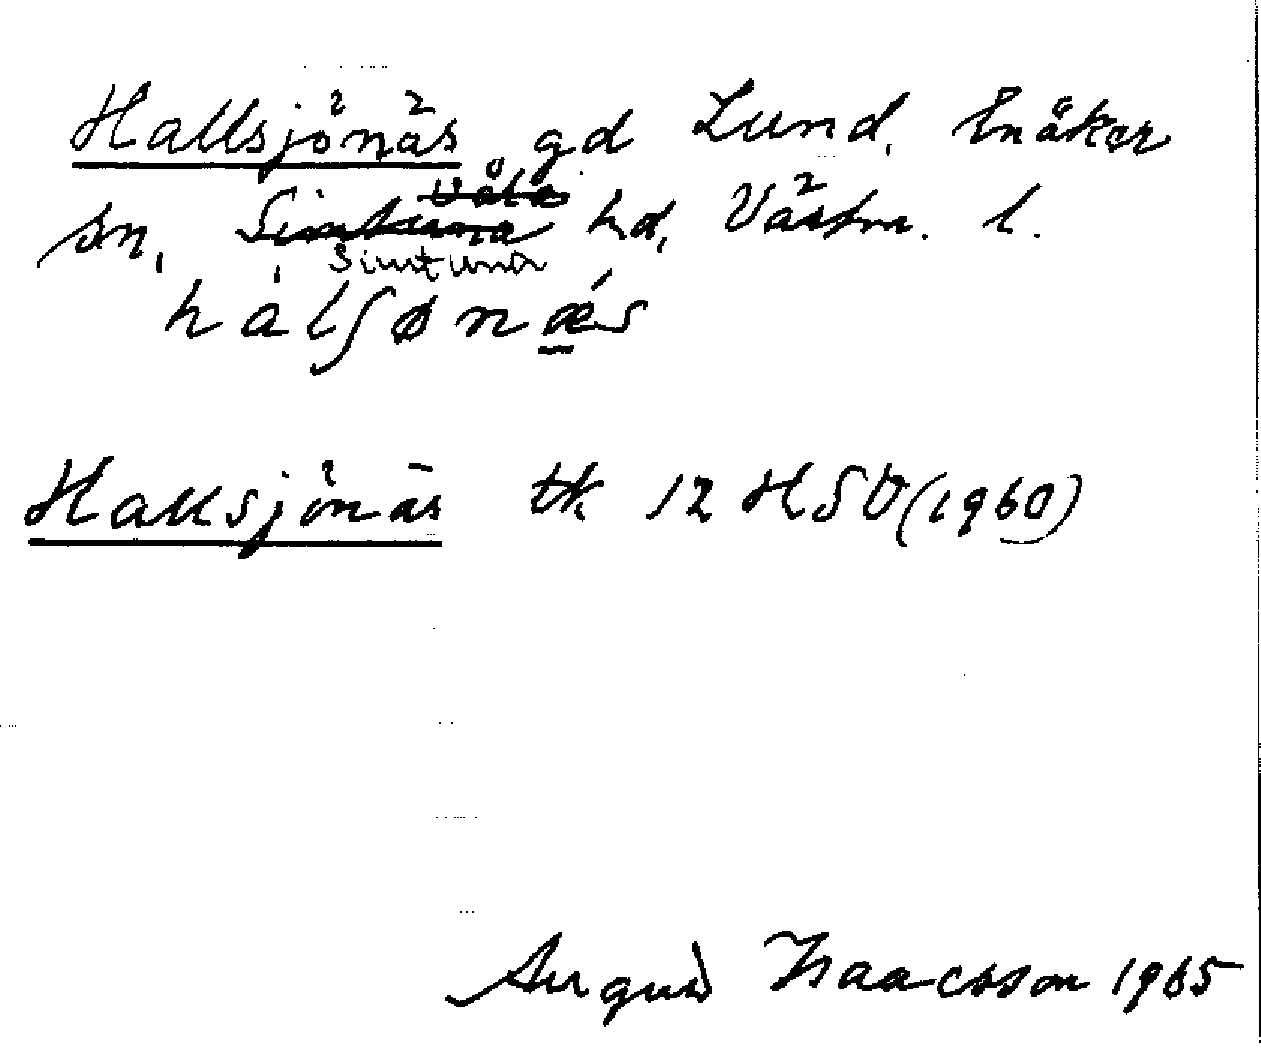 Hallsjönäs gd Lund, Enåker
Våla
sn, Simtuna hd, Västm. l.
Simtuna
hálʃønǽs
Hallsjönäs tk 12 H SV (1960)
August Isaacsson 1965